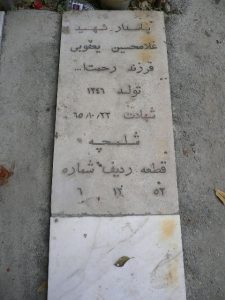 پاسدار شهید
غلامحسین یعقوبی
فرزند رحمت‌ا...
تولد ۱۳۴۶
شهادت ۶۵/۱۰/۲۲
شلمچه
قطعه ردیف شماره
۶ ۱۲ ۵۲